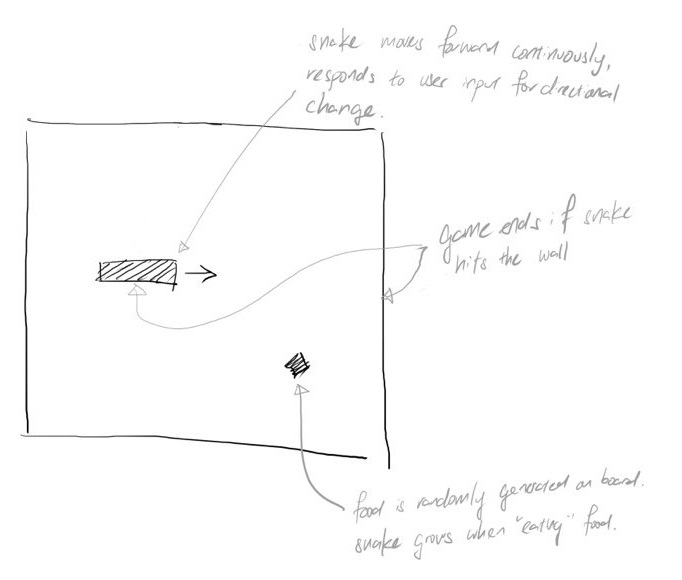 snake moves forward continuously,
responds to user input for directional
change.
game ends if snake
hits the wall
food is randomly generated on board.
snake grows when "eating" food.